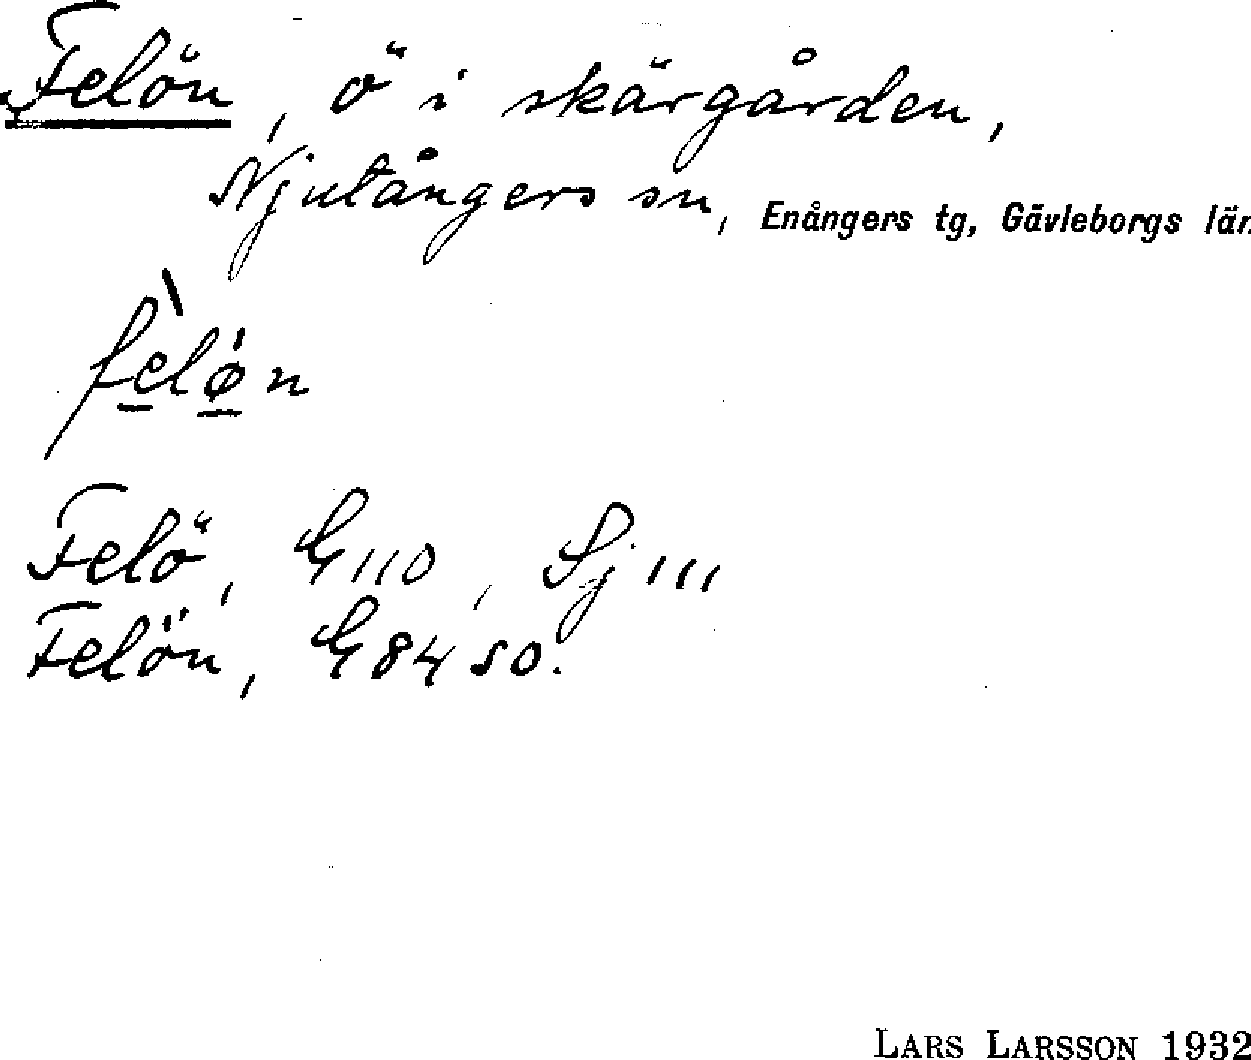 Felön, ö i skärgården,
Njutångers sn, Enångers tg, Gävleborgs län
fe̲lø̲n
Felö, G110, Sj 111
Felön, G84 SO.
LARS LARSSON 1932